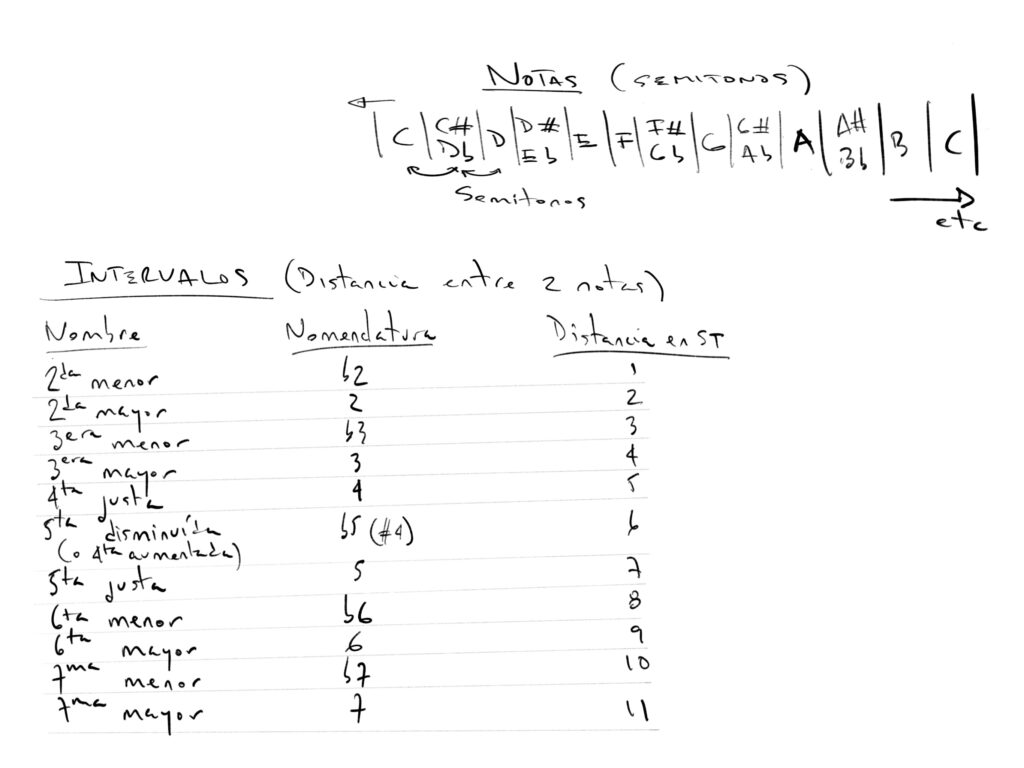 NOTAS (SEMITONOS)
| C | C# Db | D | D# Eb | E | F | F# Gb | G | G# Ab | A | A# Bb | B | C |
Semitonos
etc
INTERVALOS (Distancia entre 2 notas)
Nombre Nomenclatura Distancia en ST
2da menor b2 1
2da mayor 2 2
3era menor b3 3
3era mayor 3 4
4ta justa 4 5
5ta disminuída b5 (#4) 6
(o 4ta aumentada)
5ta justa 5 7
6ta menor b6 8
6ta mayor 6 9
7ma menor b7 10
7ma mayor 7 11